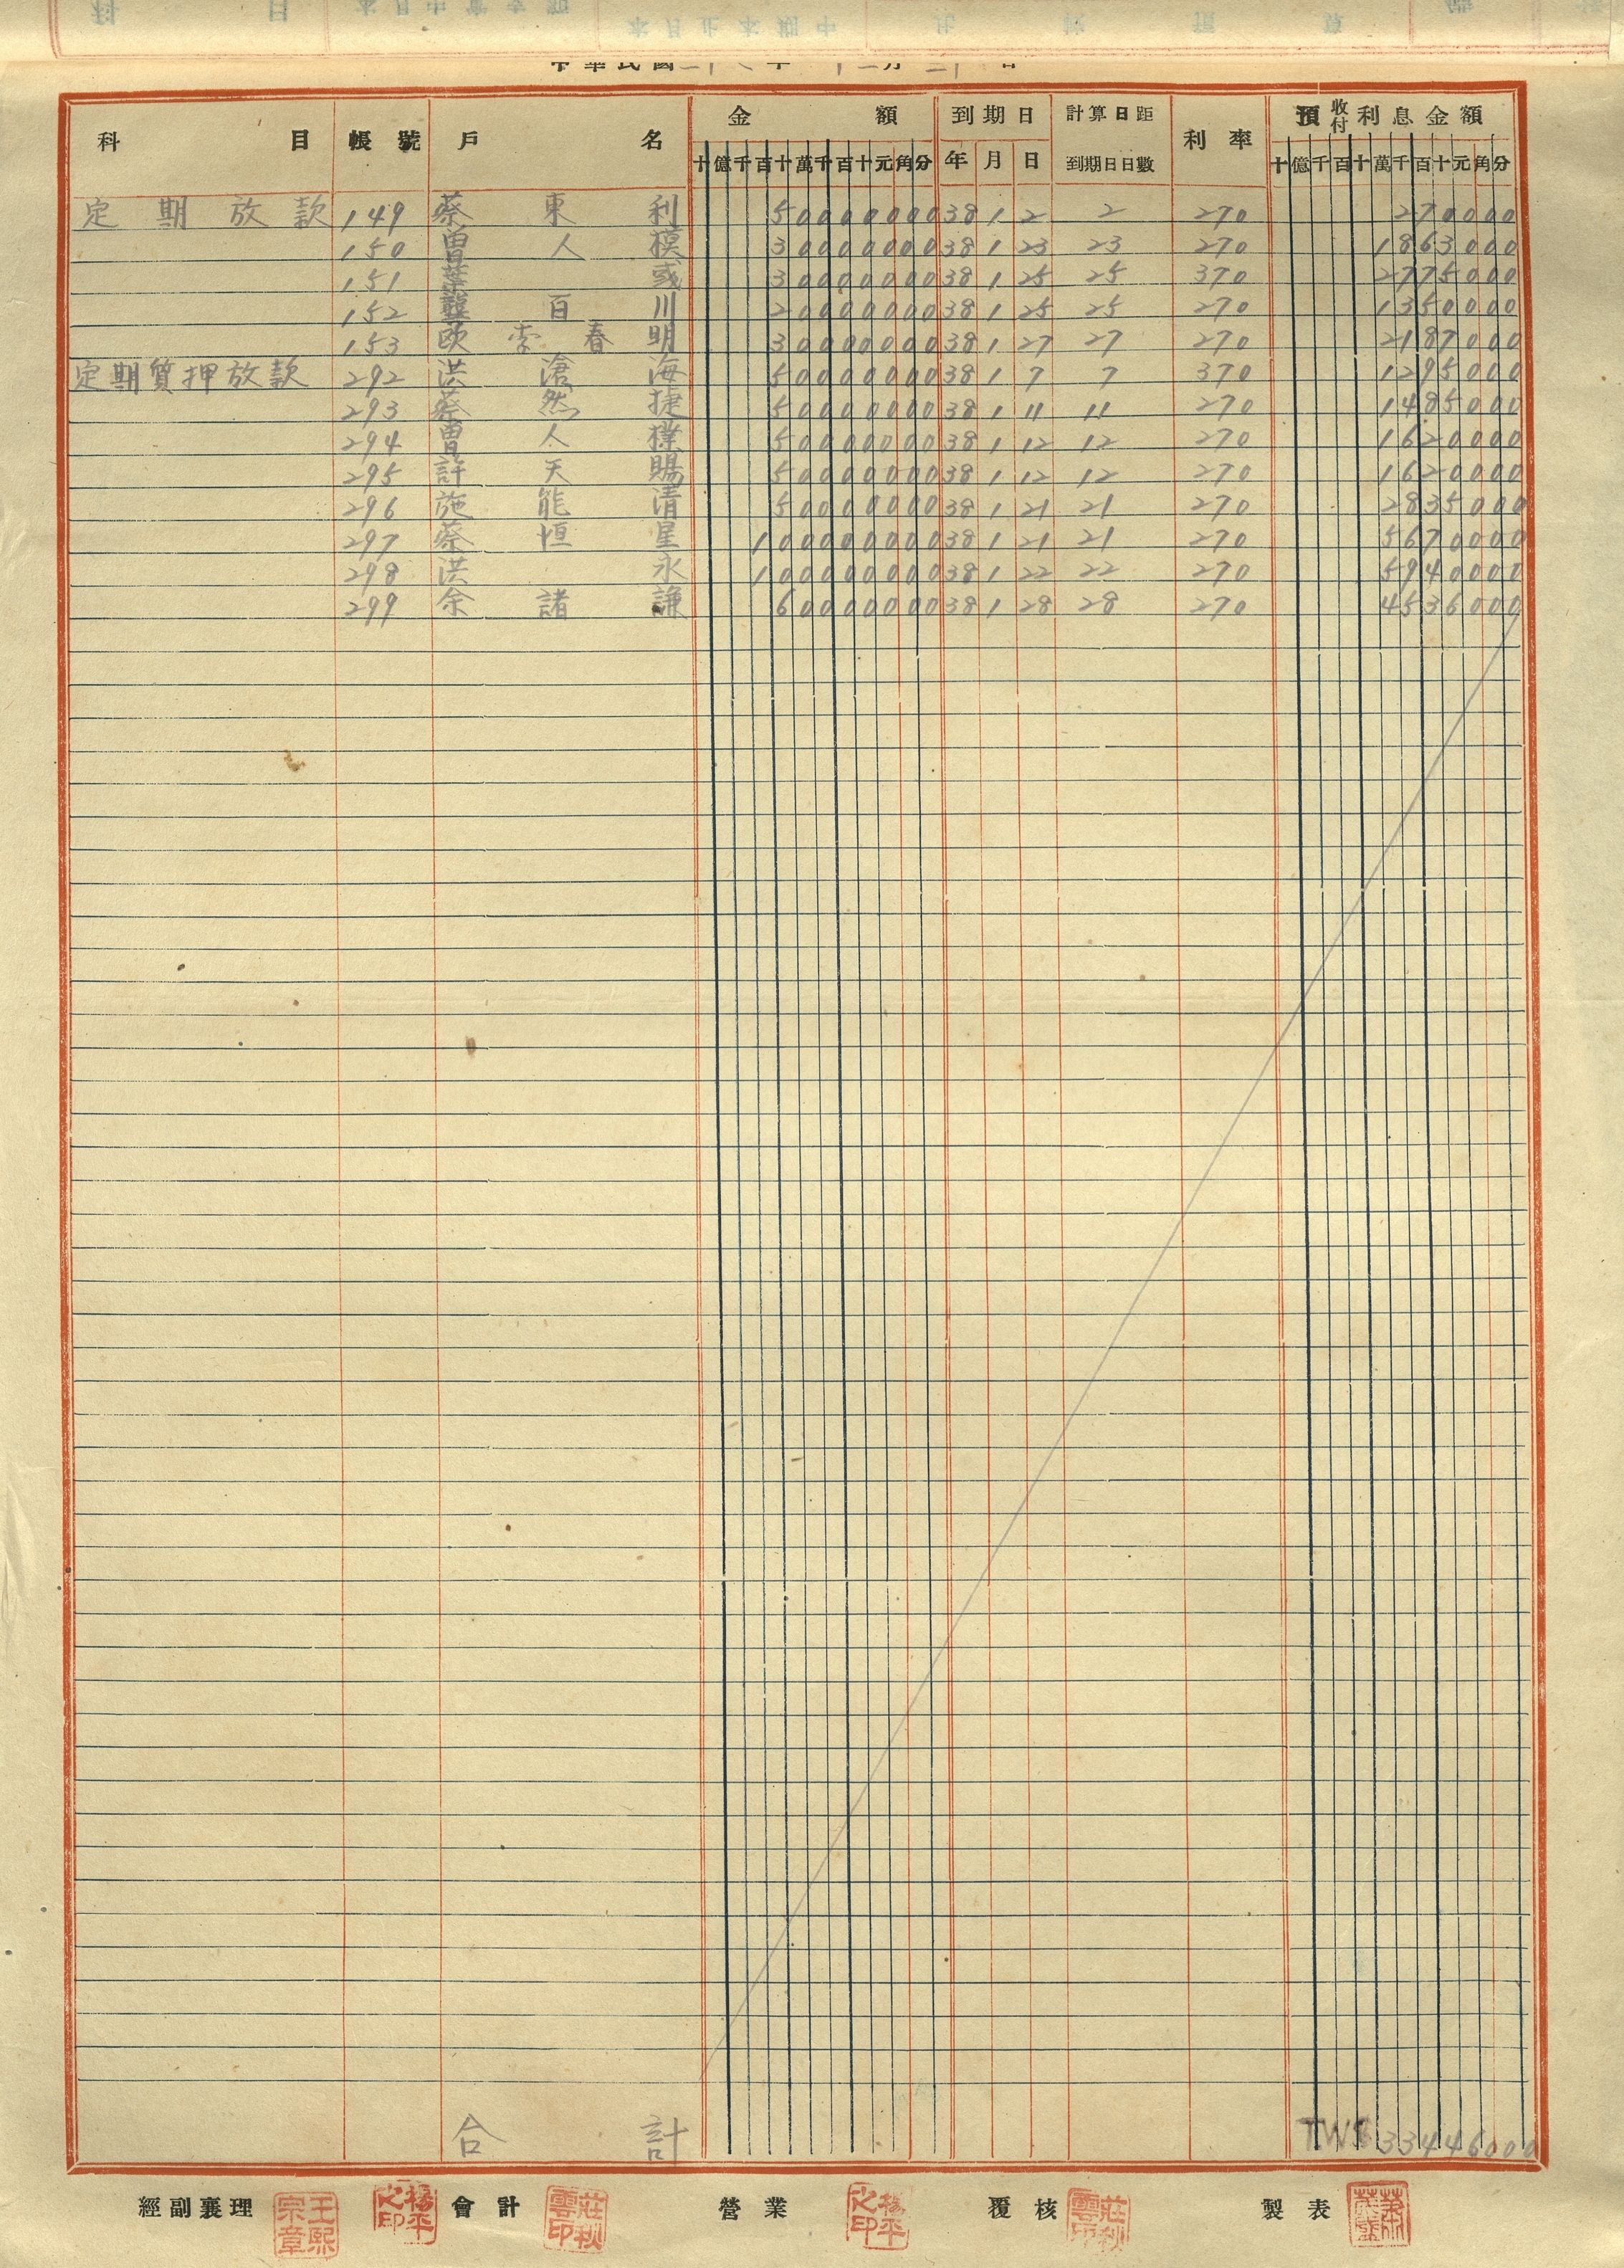 中華民國三十七年十二月三十日
科目 帳號 戶名 金額 到期日 計算日距到期日日數 利率 預收付利息金額
十億千百十萬千百十元角分 年 月 日 十億千百十萬千百十元角分
定期放款 149 蔡東利 500000000 38 1 2 2 270 2700000
150 曾人模 300000000 38 1 23 23 270 1863000
151 葉或 300000000 38 1 25 25 370 2775000
152 龔百川 200000000 38 1 25 25 270 1350000
153 歐 春明 300000000 38 1 27 27 270 2187000
定期質押放款 292 洪滄海 500000000 38 1 7 7 370 1295000
293 蔡然捷 500000000 38 1 11 11 270 1485000
294 曾人樸 500000000 38 1 12 12 270 1620000
295 許天賜 500000000 38 1 12 12 270 1620000
296 施能清 500000000 38 1 21 21 270 2835000
297 蔡恒星 1000000000 38 1 21 21 270 5670000
298 洪永 1000000000 38 1 22 22 270 5940000
299 余諸謙 600000000 38 1 28 28 270 4536000
合計 33446000
經副襄理 王熙宗章 楊平之印 會計 莊秋雲印 營業 楊平之印 覆核 莊秋雲印 製表